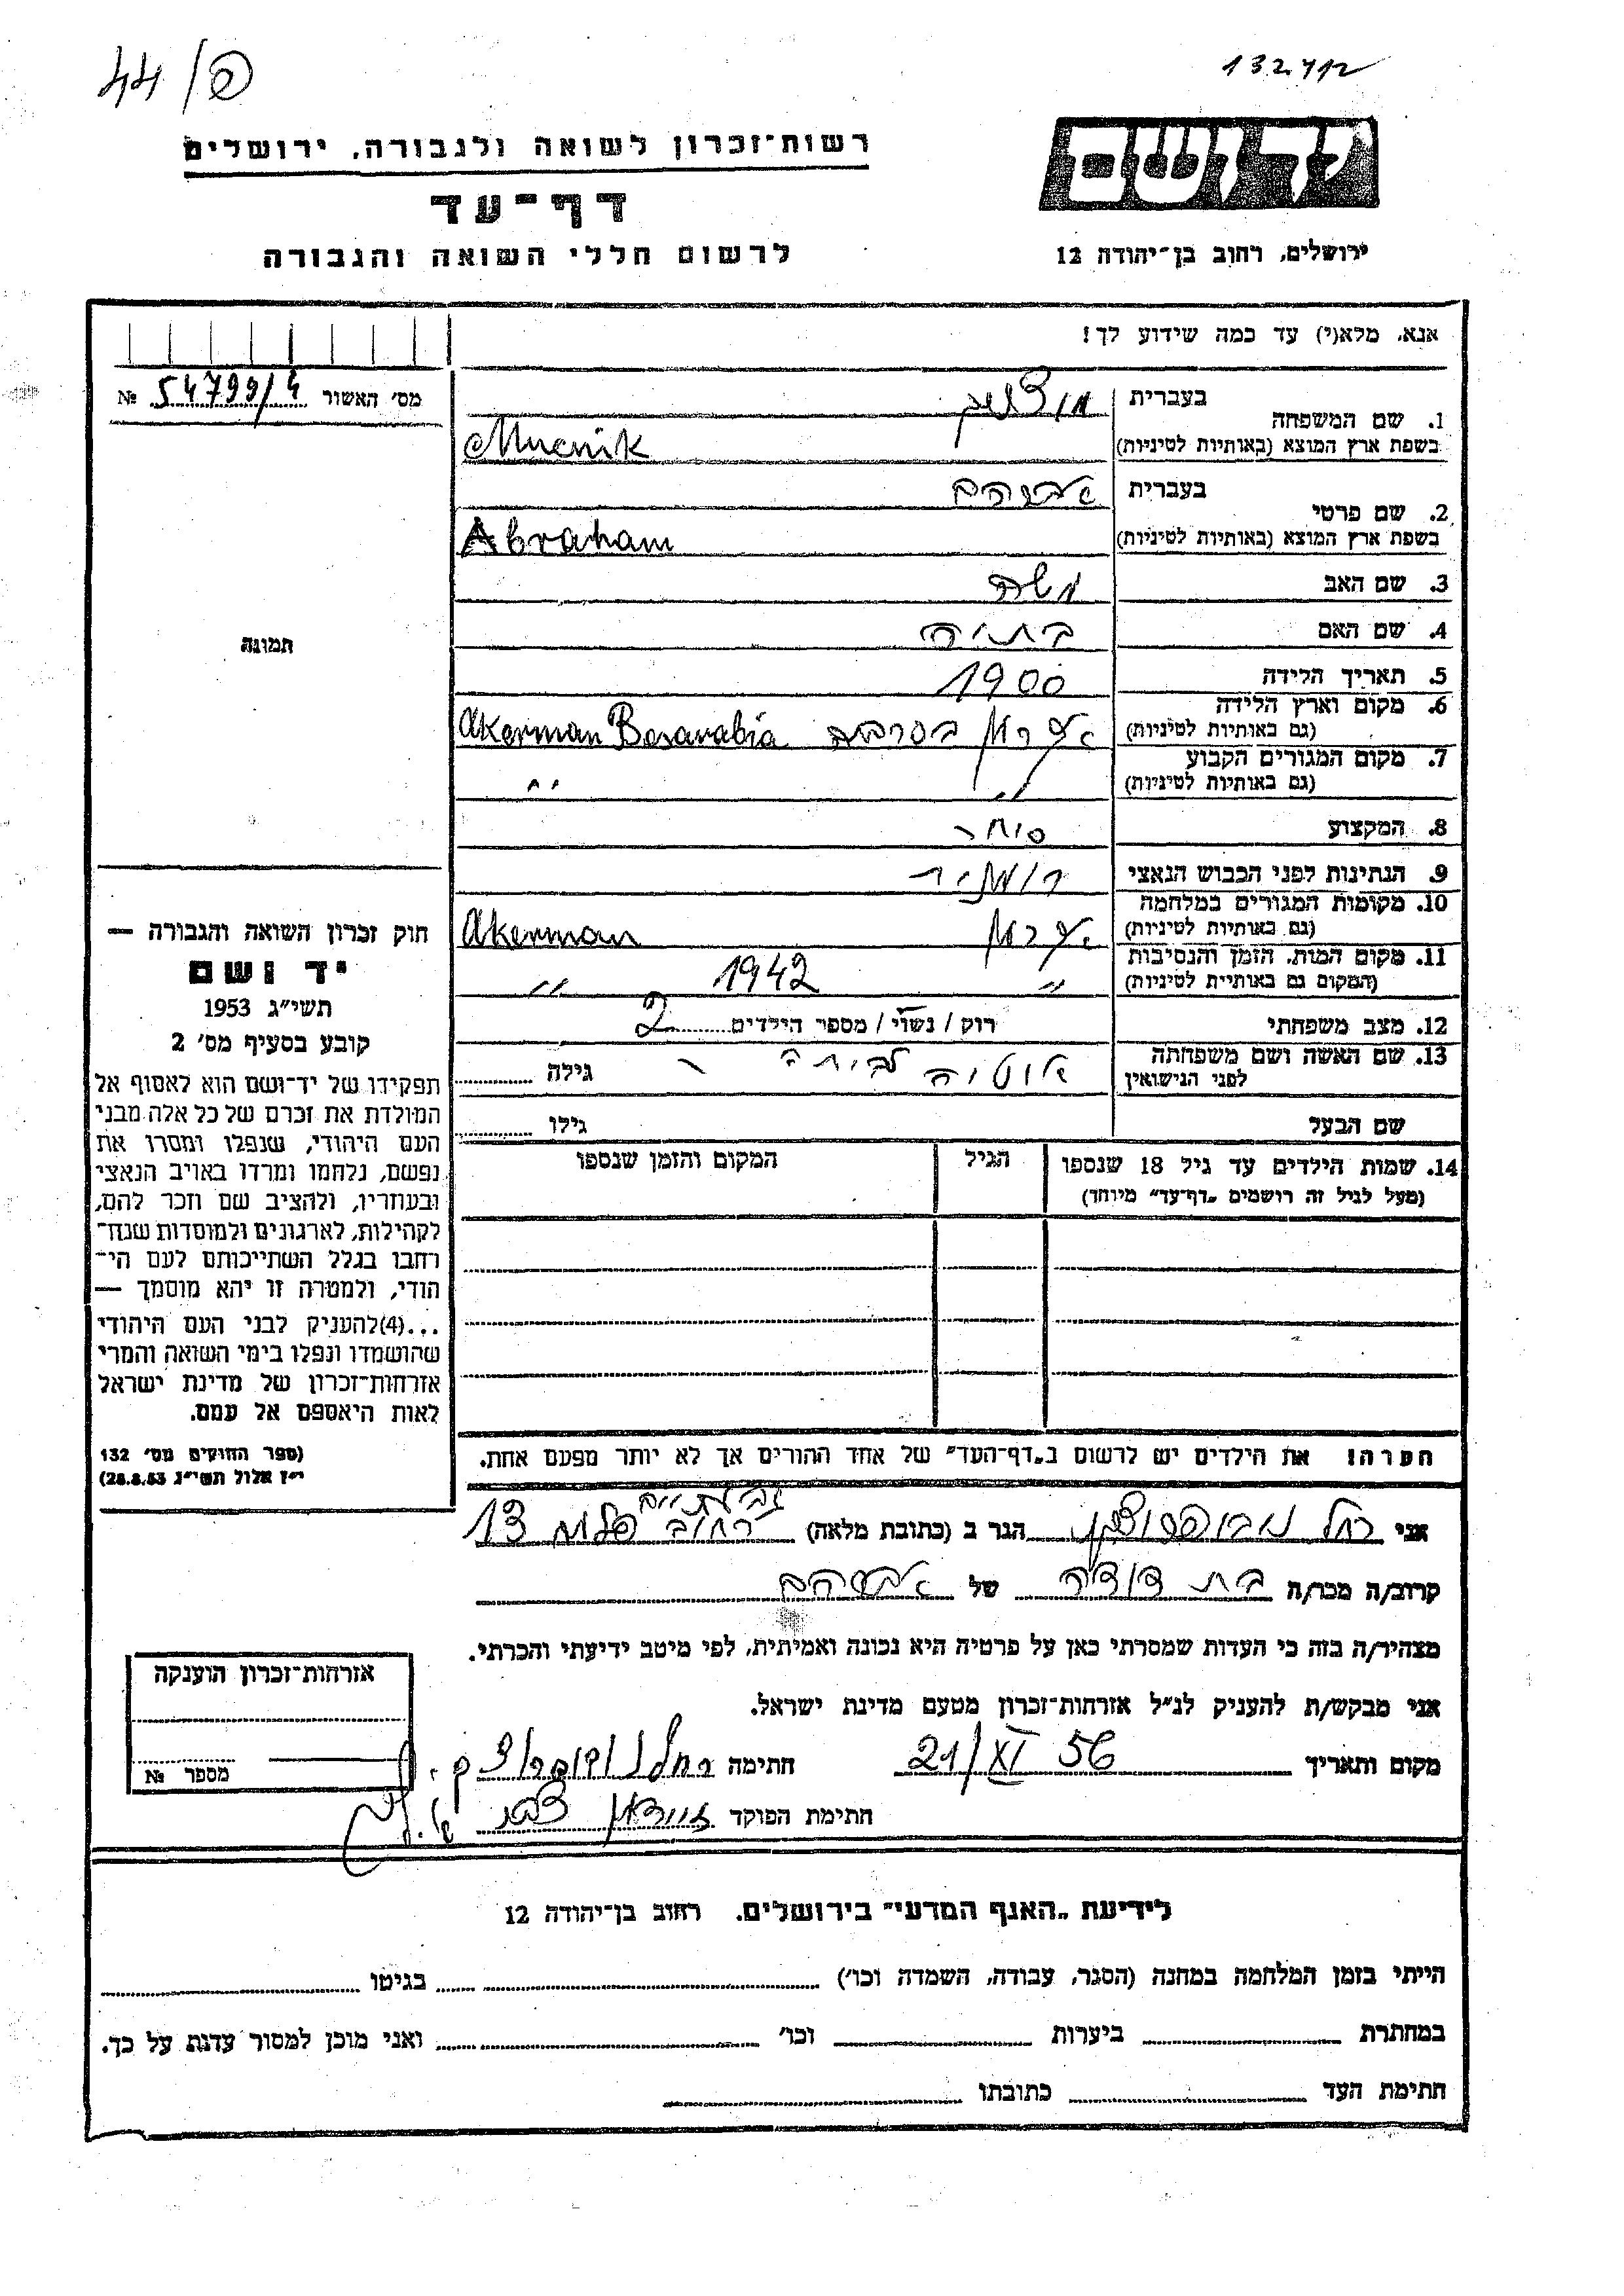 44/פ
132412
רשות־זכרון לשואה ולגבורה, ירושלים
יד ושם
דף־עד
לרשום חללי השואה והגבורה
ירושלים, רחוב בן־יהודה 12
אנא, מלא(י) עד כמה שידוע לך!
מס׳ האשור 54799/4 №
1. שם המשפחה בעברית
בשפת ארץ המוצא (באותיות לטיניות) Mucnik
2. שם פרטי בעברית אברהם
בשפת ארץ המוצא (באותיות לטיניות) Abraham
3. שם האב משה
4. שם האם בתיה
תמונה
5. תאריך הלידה 1900
6. מקום וארץ הלידה
(גם באותיות לטיניות) בסרביה Akerman Besarabia
7. מקום המגורים הקבוע
(גם באותיות לטיניות) " "
8. המקצוע סוחר
9. הנתינות לפני הכבוש הנאצי
10. מקומות המגורים במלחמה
(גם באותיות לטיניות) Akerman
11. מקום המות, הזמן והנסיבות
(המקום גם באותיית לטיניות) " 1942 "
12. מצב משפחתי רוק / נשוי / מספר הילדים 2
13. שם האשה ושם משפחתה
לפני הנישואין גילה
שם הבעל גילו
14. שמות הילדים עד גיל 18 שנספו הגיל המקום והזמן שנספו
(מעל לגיל זה רושמים „דף־עד” מיוחד)
חוק זכרון השואה והגבורה —
יד ושם
תשי״ג 1953
קובע בסעיף מס׳ 2
תפקידו של יד־ושם הוא לאסוף אל
המולדת את זכרם של כל אלה מבני
העם היהודי, שנפלו ומסרו את
נפשם, נלחמו ומרדו באויב הנאצי
ובעוזריו, ולהציב שם וזכר להם,
לקהילות, לארגונים ולמוסדות שנח־
רחבו בגלל השתייכותם לעם הי־
הודי, ולמטרה זו יהא מוסמך —
...(4)להעניק לבני העם היהודי
שהושמדו ונפלו בימי השואה והמרי
אזרחות־זכרון של מדינת ישראל
לאות היאספם אל עמם.
(ספר החוקים מס׳ 132
י״ז אלול תשי״ג 28.8.53)
הערה! את הילדים יש לרשום ב„דף־העד” של אחד ההורים אך לא יותר מפעם אחת.
גבעתיים
אני רחל הגר ב (כתובת מלאה) רחוב 13
קרוב/ה מכר/ה בת דודה של אברהם
מצהיר/ה בזה כי העדות שמסרתי כאן על פרטיה היא נכונה ואמיתית, לפי מיטב ידיעתי והכרתי.
אני מבקש/ת להעניק לנ״ל אזרחות־זכרון מטעם מדינת ישראל.
מקום ותאריך 21/XI 56 חתימה
חתימת הפוקד
אזרחות־זכרון הוענקה
מספר №
לידיעת „האגף המדעי” בירושלים. רחוב בן־יהודה 12
הייתי בזמן המלחמה במחנה (הסגר, עבודה, השמדה וכו׳) בגיטו
במחתרת ביערות וכו׳ ואני מוכן למסור עדות על כך.
חתימת העד כתובתו